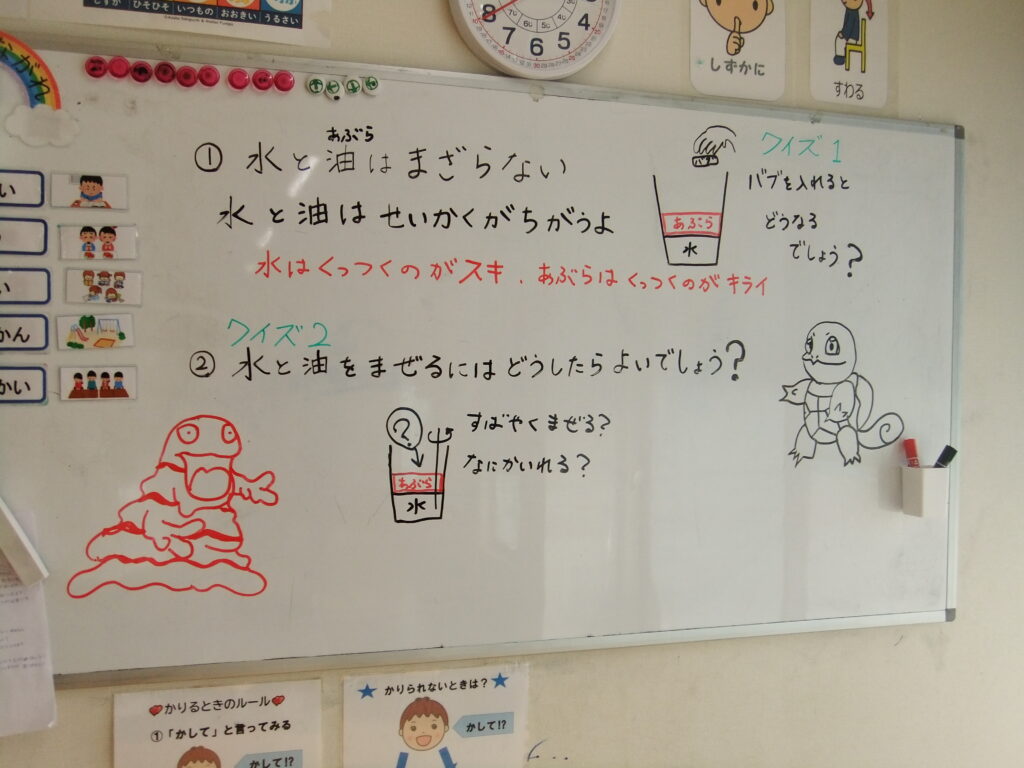 しずか ひそひそ いつもの おおきい うるさい
8 7 6 5 4
しずかに
すわる
あぶら
① 水と油はまざらない
水と油は せいかくがちがうよ
水はくっつくのがスキ、あぶらはくっつくのがキライ
クイズ1
バブを入れると
どうなる
でしょう?
バブ
あぶら
水
クイズ2
② 水と油をまぜるにはどうしたらよいでしょう?
?
あぶら
水
すばやくまぜる?
なにかいれる?
い
い
かん
かい
かりるときのルール
①「かして」と言ってみる
かして!?
かりられないときは?
かして!?